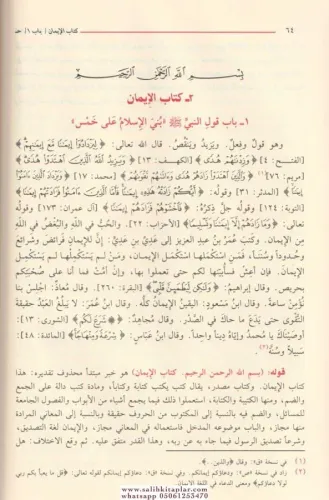 ٦٤
كتاب الإيمان / باب ١/ حـ
بسم الله الرحمن الرحيم
٢ـ كتاب الإيمان
١ـ باب قول النبي ﷺ «بُنِيَ الإسلامُ عَلى خَمْسٍ»
وهو قولٌ وفعلٌ. ويزيدُ وينقصُ. قال الله تعالى: ﴿لِيَزْدَادُوا إِيمَنًا مَعَ إِيمَنِهِمْ﴾
[الفتح: ٤] ﴿وَزِدْنَهُمْ هُدًى﴾ [الكهف: ١٣] ﴿وَيَزِيدُ اللَّهُ الَّذِينَ اهْتَدَوْا هُدًى﴾
[مريم: ٧٦](١) ﴿وَالَّذِينَ اهْتَدَوْا زَادَهُمْ هُدًى وَءَاتَنهُمْ تَقْوَنهُمْ﴾ [محمد: ١٧] ﴿وَيَزْدَادَ الَّذِينَ ءَامَنُوا
إِيمَنًا﴾ [المدثر: ٣١] وقوله: ﴿أَيُّكُمْ زَادَتْهُ هَذِهِ إِيمَنًا فَأَمَّا الَّذِينَ ءَامَنُوا فَزَادَتْهُمْ إِيمَنًا﴾
[التوبة: ١٢٤] وقوله جلَّ ذِكرُهُ: ﴿فَاخْشَوْهُمْ فَزَادَهُمْ إِيمَنًا﴾ [آل عمران: ١٧٣] وقوله
تعالى: ﴿وَمَا زَادَهُمْ إِلَّا إِيمَنًا وَتَسْلِيمًا﴾ [الأحزاب: ٢٢]. والحبُّ في الله والبُغضُ في الله
من الإيمان. وكتبَ عُمرُ بنُ عبدِ العزيزِ إلى عَدِيِّ بنِ عَدِيٍّ: إنَّ للإيمانِ فرائضَ وشرائعَ
وحُدوداً وسُنناً، فمَنِ اسْتكملها استكملَ الإيمان، ومَنْ لم يستكملْها لم يستكمِلِ
الإيمان. فإن أعِشْ فسأُبيِّنها لكم حتى تعملوا بها، وإن أمُتْ فما أنا على صُحبتِكم
بحريص. وقال إبراهيمُ: ﴿وَلَكِن لِيَطْمَئِنَّ قَلْبِي﴾ [البقرة: ٢٦٠]. وقال مُعاذٌ: اجْلِسْ بنا
نُؤمِنْ ساعةً. وقال ابنُ مسعودٍ: اليقينُ الإيمانُ كلُّه. وقال ابنُ عُمرَ: لا يبلُغُ العبدُ حقيقةَ
التَّقوى حتى يَدَعَ ما حاكَ في الصَّدْر. وقال مُجاهدٌ: ﴿شَرَعَ لَكُم﴾ [الشورى: ١٣]:
أوصَيْناكَ يا محمدُ وإيّاهُ ديناً واحداً. وقال ابنُ عبّاسٍ: ﴿شِرْعَةً وَمِنْهَاجًا﴾ [المائدة: ٤٨]:
سَبيلاً وسُنَّة(٢).
قوله: (بسم الله الرحمن الرحيم. كتاب الإيمان) هو خبر مبتدأ محذوف تقديره: هذا
كتاب الإيمان. وكتاب مصدر، يقال كتب يكتب كتابة وكتاباً، ومادة كتب دالة على الجمع
والضم، ومنها الكتيبة والكتابة، استعملوا ذلك فيما يجمع أشياء من الأبواب والفصول الجامعة
للمسائل، والضم فيه بالنسبة إلى المكتوب من الحروف حقيقة وبالنسبة إلى المعاني المرادة
منها مجاز، والباب موضوعه المدخل فاستعماله في المعاني مجاز، والإيمان لغة التصديق،
وشرعاً تصديق الرسول فيما جاء به عن ربه، وهذا القدر متفق عليه. ثم وقع الاختلاف: هل
(١) في نسخة «ق»: وقال ﴿والذين..﴾.
(٢) زاد في نسخة «ص»: دعاؤكم إيمانكم. وفي نسخة «ق»: دعاؤكم إيمانكم لقوله تعالى: ﴿قل ما يعبأ بكم ربي
لولا دعاؤكم﴾ ومعنى الدعاء في اللغة الايمان.
www.salihkitaplar.com
whatsapp 05061253470